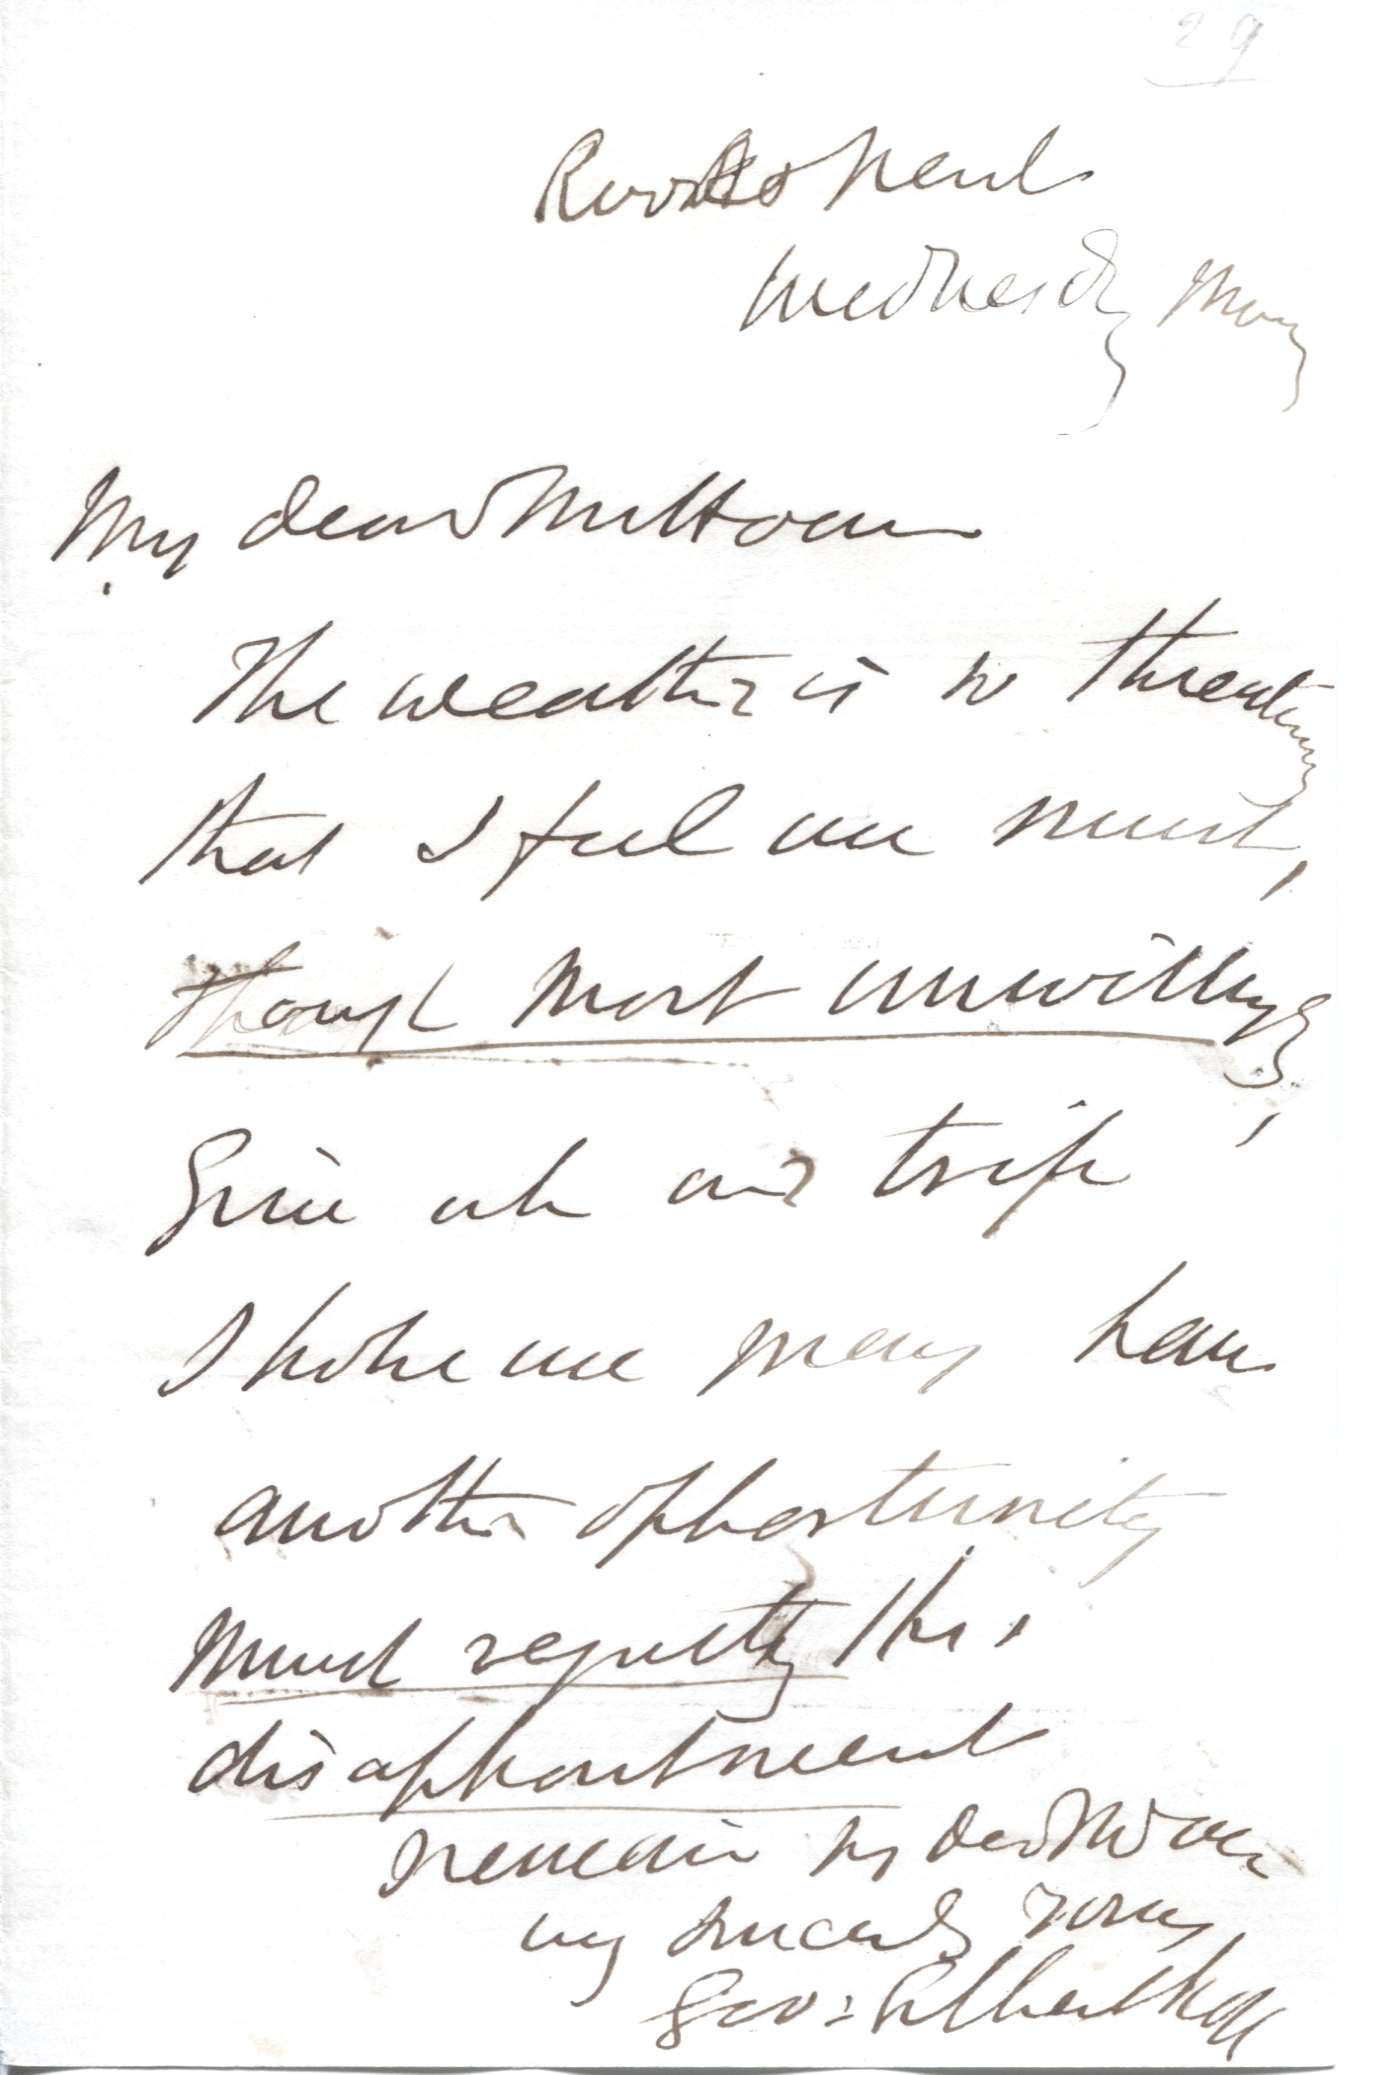 29
Rooksnest
Wednesday Mor
My dear Mr Hooker
The weather is so threatening
that I feel we must,
though most unwillingly,
Give up our trip
I hope we may have
another opportunity
Much regretting this
disappointment
I remain my dear
very sincerely yours
Geo: Gilbert Scott